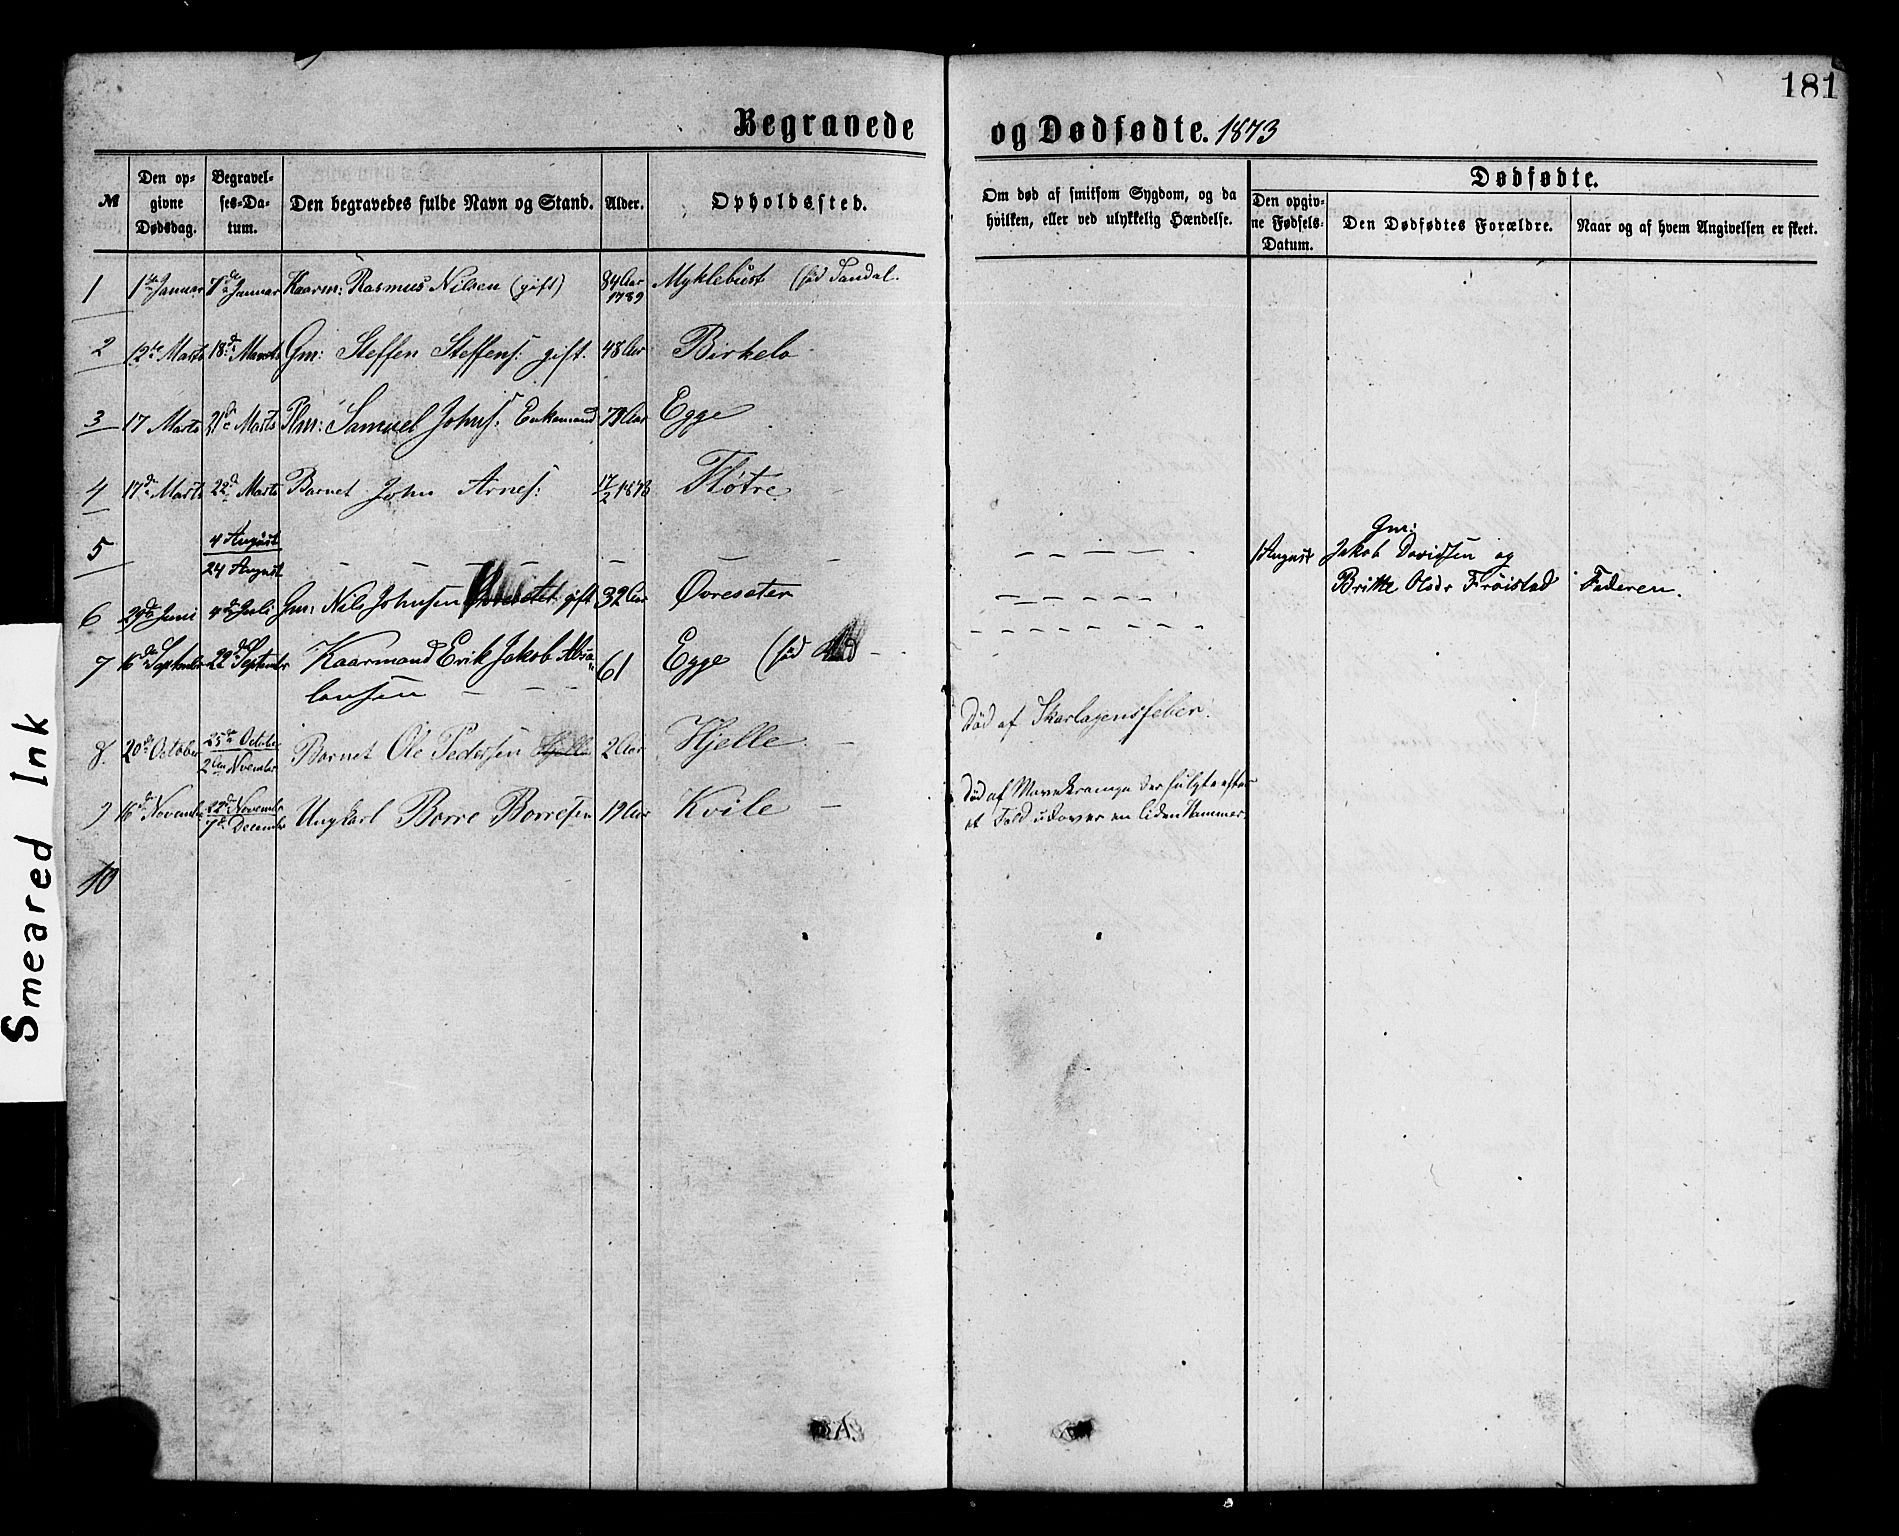 181
Begravede og Dødfødte. 1873
№
Den opgivne Dødsdag.
Begravelses-Datum.
Den begravedes fulde Navn og Stand.
Alder.
Opholdssted.
Om død af smitsom Sygdom, og da hvilken, eller ved ulykkelig Hændelse.
Dødfødte.
Den opgivne Fødsels-Datum.
Den Dødfødtes Forældre.
Naar og af hvem Angivelsen er skeet.
1 1ste Januar 7de Januar Kaarm: Rasmus Nilsen (gift) 84 Aar 1789 Myklebust (fød Sandal
2 12te Marts 18de Marts Gm: Steffen Steffens: gift. 48 Aar Birkelo
3 17 Marts 21de Marts Plm: Samuel Johns: Enkemand 79 Aar Egge
4 17de Marts 22de Marts Barnet John Arnes: 17/2 1873 Fløtre
5 4 August
24 August
1 August Gm:
Jakob Davidsen og
Britte Olsdr Frøistad Faderen.
6 29de Juni 4de Juli Gm: Nils Johnsen gift 32 Aar Øvreseter
7 16de September 22de September Kaarmand Erik Jakob Absa-
lonsen 61 Egge (fød
8. 20de October 25de October
2den November Barnet Ole Pedersen Hjelle 2 Aar Hjelle
Død af Skarlagensfeber.
9 16de November 22de November
7de December Ungkarl Børre Børresen 19 Aar Kvile
Død af Mavekrampe der fulgte efter
et Fald udover en liden Hammer.
10
Smeared Ink